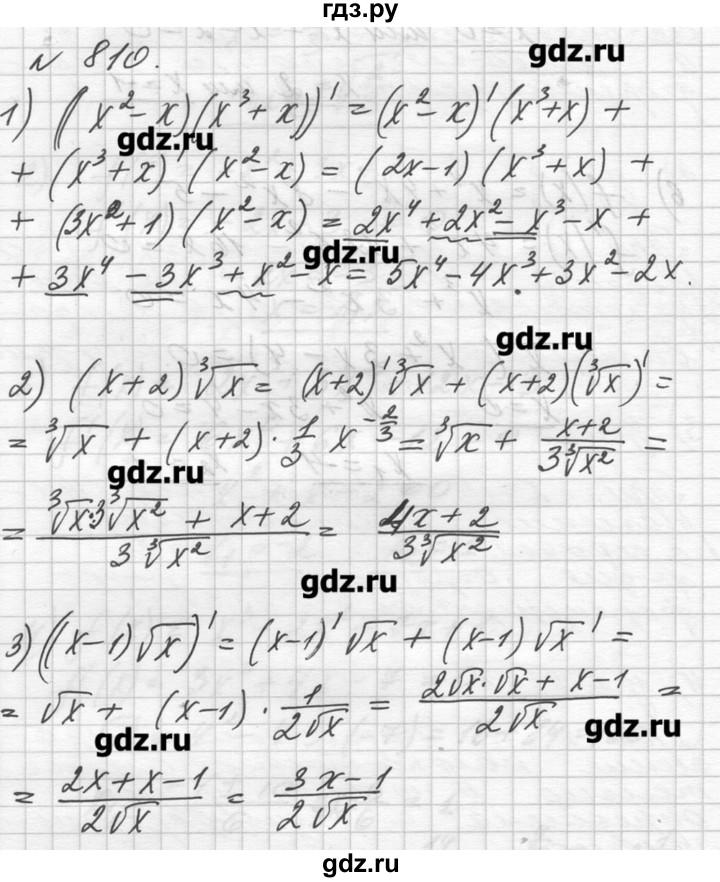 гдз.ру
№ 810.
gdz.ru
1) ((x² - x)(x³ + x))' = (x² - x)'(x³ + x) +
gdz.ru
+ (x³ + x)'(x² - x) = (2x - 1)(x³ + x) +
+ (3x² + 1)(x² - x) = 2x⁴ + 2x² - x³ - x +
gdz.ru
+ 3x⁴ - 3x³ + x² - x = 5x⁴ - 4x³ + 3x² - 2x.
gdz.ru
2) (x + 2)∛x = (x + 2)'∛x + (x + 2)(∛x)' =
= ∛x + (x + 2) · 1/3 x^(-2/3) = ∛x + (x + 2)/(3∛x²) =
gdz.ru
= (∛x · 3∛x² + x + 2)/(3∛x²) = (4x + 2)/(3∛x²)
gdz.ru
3) ((x - 1)√x)' = (x - 1)'√x + (x - 1)√x' =
= √x + (x - 1) · 1/(2√x) = (2√x · √x + x - 1)/(2√x) =
gdz.ru
gdz.ru
= (2x + x - 1)/(2√x) = (3x - 1)/(2√x)
gdz.ru